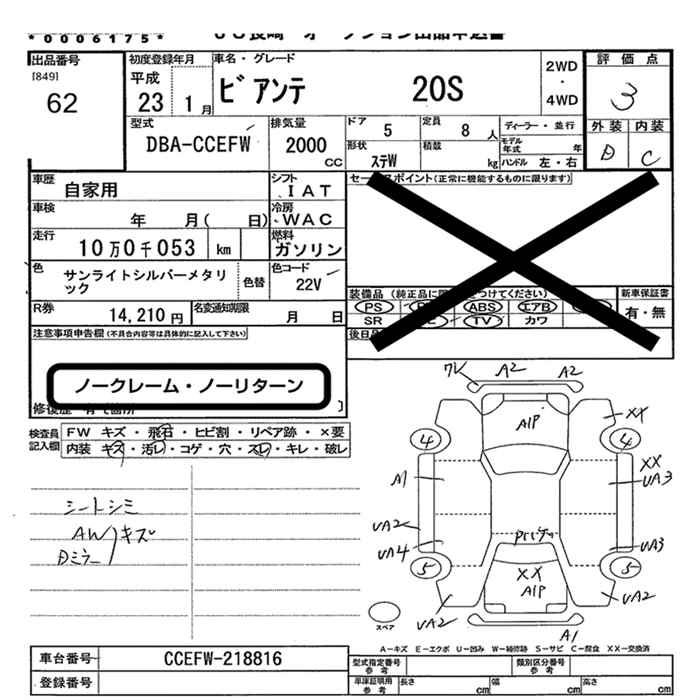 *0006175*
出品番号
[849]
62
初度登録年月
平成
23 1月
車名・グレード
ビアンテ 20S
2WD
・
4WD
評価点
3
外装 内装
D C
型式
DBA-CCEFW
排気量
2000
CC
ドア
5
定員
8 人
形状
ステW
積載
kg
ディーラー・並行
モデル年式 年
ハンドル 左・右
車歴
自家用
シフト
IAT
車検
年 月( 日)
冷房
WAC
走行
10万0千053 km
燃料
ガソリン
色
サンライトシルバーメタリ
ック
色替
色コード
22V
R券
14,210円
名変通知期限
月 日
注意事項申告欄(不具合内容等は具体的に記入して下さい)
ノークレーム・ノーリターン
(正常に機能するものに限ります)
装備品
新車保証書
有・無
PS ABS エアB
SR TV カワ
検査員
記入欄
FW キズ・飛石・ヒビ割・リペア跡・×要
内装 キズ・汚レ・コゲ・穴・スレ・キレ・破レ
シートシミ
AW
キズ
Dミラー
A2 A2
A1P
XX
4 4
A1
XX
UA3
UA2
UA4
UA3
5 5
XX
A1P
UA2
UA2
A1
スペア
A―キズ E―エクボ U―凹み W―補修跡 S―サビ C―腐食 XX―交換済
車台番号
CCEFW-218816
登録番号
型式指定番号
参考
類別区分番号
参考
車庫証明用
参考
長さ cm
幅 cm
高さ cm